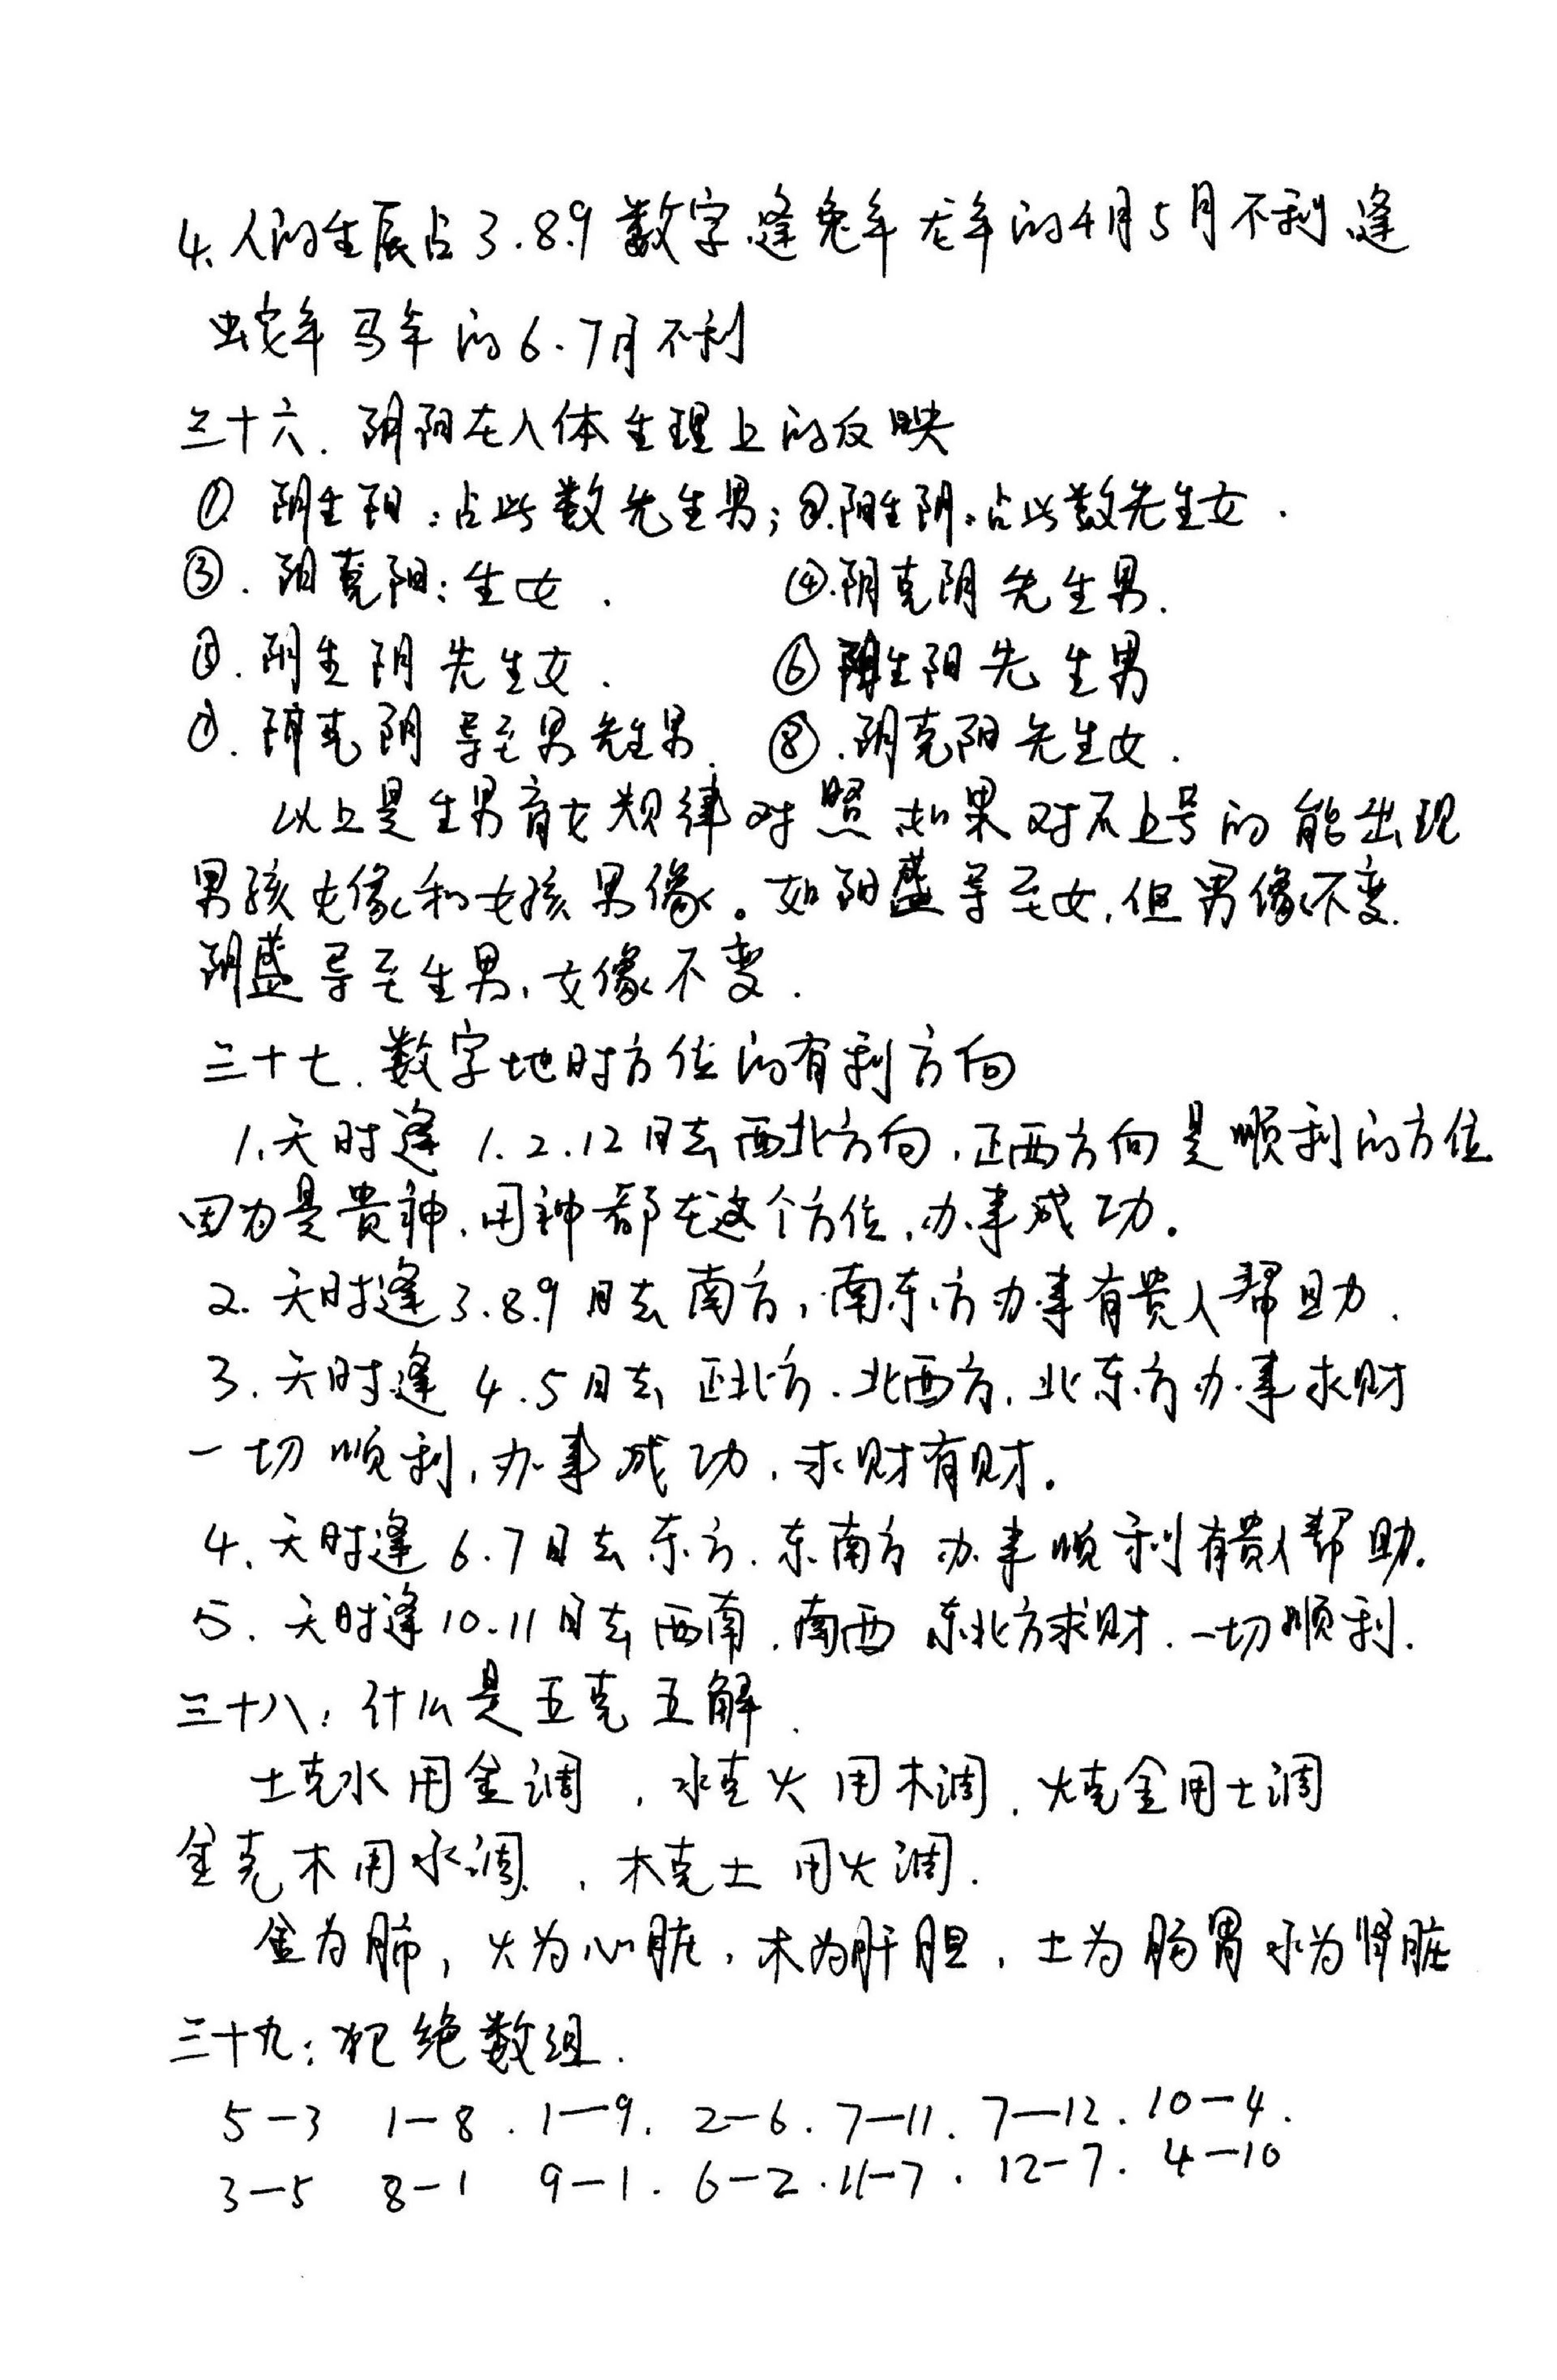 4、人的生辰占3.8.9数字逢兔年龙年的4月5月不利逢
蛇年马年的6.7月不利
三十六.阴阳在人体生理上的反映
①.阴生阳:占此数先生男;②.阳生阴:占此数先生女.
③.阳克阳:生女.④.阴克阴先生男.
⑤.阴生阴先生女.⑥生阳先生男
克阴导至男先生男.⑧.阴克阳先生女.
以上是生男育女规律对照如果对不上号的能出现
男孩女像和女孩男像。如阳盛导至女,但男像不变.
阴盛导至生男,女像不变.
三十七.数字地时方位的有利方向
1、天时逢1.2.12月去西北方向,正西方向是顺利的方位
因为是贵神、用神都在这个方位,办事成功。
2.天时逢3.8.9月去南方,南东方办事有贵人帮助.
3.天时逢4.5月去正北方.北西方,北东方办事求财
一切顺利,办事成功,求财有财。
4、天时逢6.7月去东方.东南方办事顺利有贵人帮助.
5.天时逢10.11月去西南.南西东北方求财.一切顺利.
三十八:什么是五克五解.
土克水用金调,水克火用木调,火克金用土调
金克木用水调,木克土用火调.
金为肺,火为心脏,木为肝胆,土为肠胃水为肾脏
三十九:犯绝数组.
5-3 1-8.1-9.2-6.7-11.7-12.10-4.
3-5 8-1 9-1.6-2.11-7.12-7.4-10